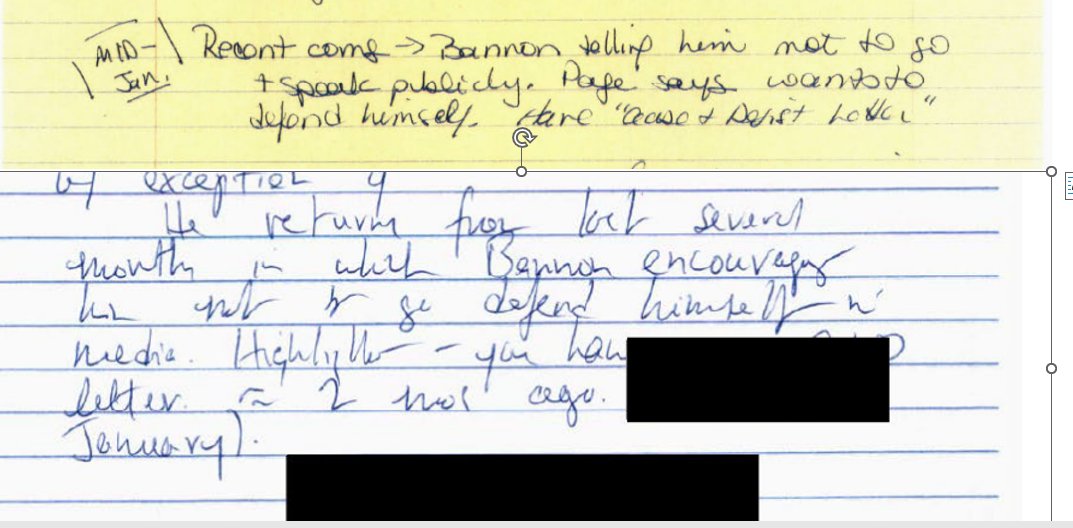 MID- Recent coms → Bannon telling him not to go
Jan. + speak publicly. Page says wants to
defend himself. Have "cease & Desist Letter"
by exception
He returns from last several
months in which Bannon encourages
him not to go defend himself in
media. Highlights - you have
letter. ≈ 2 mos ago.
January).